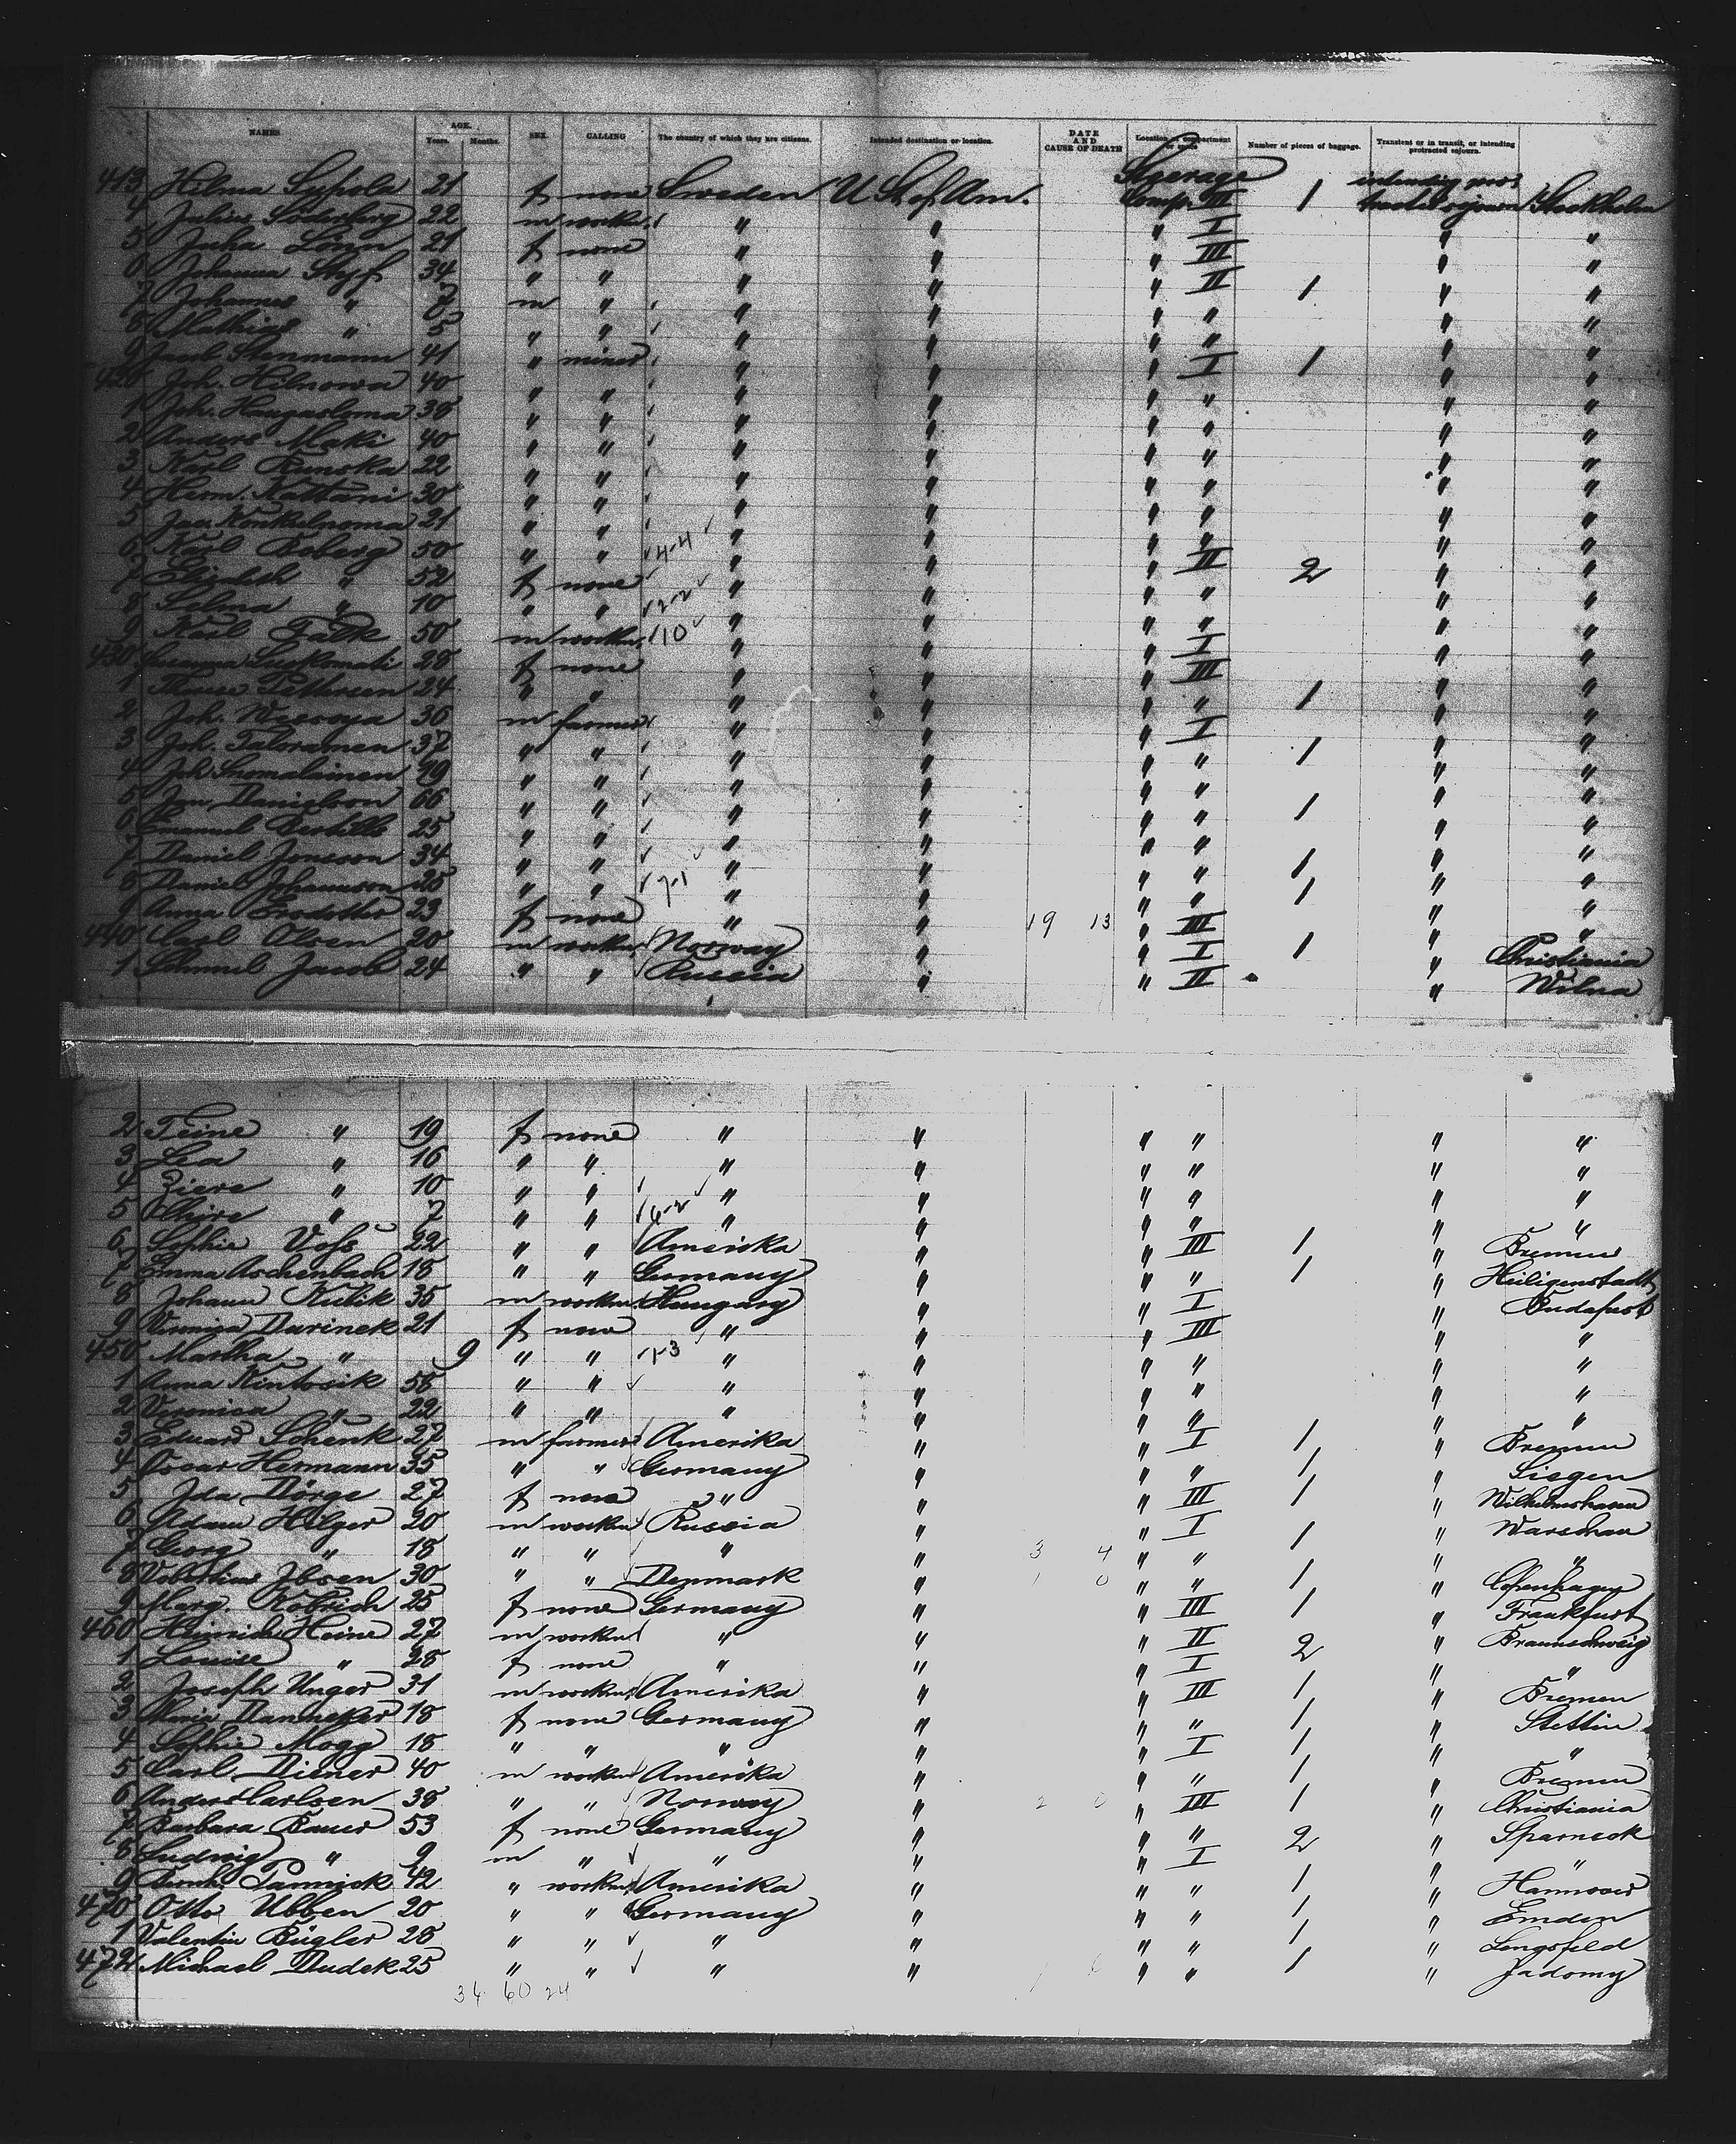 NAMES AGE. Years. Months. SEX. CALLING The country of which they are citizens. Intended destination or location. DATE AND CAUSE OF DEATH Location of compartment or space Number of pieces of baggage. Transient or in transit, or intending protracted sojourn.
Steerage
413 Hilma 21 f none Sweden U St of Am. Comp. III 1 Stockholm
4 Julius Söderberg 22 m " " " I " "
5 Juha 21 f none " " " III " "
6 Johanna Styf 34 " " " " " II 1 " "
7 Johannes " 7 m " " " " " " "
8 Mathias " 5 " " " " " " " "
9 Jacob Stenmann 41 " miner " " " I 1 " "
420 Joh. Hilmowa 40 " " " " " " " "
1 Joh. Haugasloma 38 " " " " " " " "
2 Anders Maki 40 " " " " " " " "
3 Karl 22 " " " " " " " "
4 Herm. Kattani 30 " " " " " " " "
5 21 " " " " " " " "
6 Karl 50 " " 4-4 " " " II 2 " "
7 Elizabeth " 52 f none " " " " " "
8 Selma " 10 " " 2-2 " " " " " "
9 Karl Falk 50 m 10 " " " I " "
430 Susanna 28 f none " " " III " "
1 Pettersen 24 " " " " " " 1 " "
2 Joh. 36 m farmer " " " I " "
3 Joh. 37 " " " " " " 1 " "
4 Joh. Suomalainen 19 " " " " " " " "
5 Jon Danielson 66 " " " " " " 1 " "
6 Emanuel 25 " " " " " " " "
7 Daniel Jonsson 34 " " " " " " 1 " "
8 Daniel Johannson 25 " " 7-1 " " " " 1 " "
9 Anna 23 f none " " 19 13 " III " "
440 Carl Olsen 20 m Norway " " I 1 " Christiania
1 Jacob 24 " " Russia " " II " Wilna
2 Teine " 19 f none " " " " " "
3 Lea " 16 " " " " " " " "
4 Ziere " 10 " " " " " " " "
5 " 7 " " 6-2 " " " " " "
6 Sophie Vofs 22 " " Amerika " " III 1 " Bremen
7 Emma Aschenbach 18 " " Germany " " " 1 " Heiligenstadt
8 Johann Kulik 35 m Hungary " " I " Budapest
9 Durinek 21 f none " " " III " "
450 Martha " 9 " " 1-3 " " " " " "
1 Anna Kintosik 58 " " " " " " " "
2 Veronica " 22 " " " " " " " "
3 Eduard Schenk 27 m farmer Amerika " " I 1 " Bremen
4 Oscar Hermann 35 " " Germany " " " 1 " Siegen
5 Ida Dörge 27 f none " " " III 1 " Wilhelmshaven
6 Adam Hilger 20 m Russia " " I 1 " Warschau
7 Georg " 18 " " " " 3 4 " " " "
8 Ibsen 30 " " Denmark " 1 0 " " 1 " Copenhagen
9 Marg. Kobrich 25 f none Germany " " III 1 " Frankfurt
460 Heinrich Heine 27 m " " " II 2 " Braunschweig
1 Louise " 28 f none " " " I " "
2 Joseph Unger 31 m Amerika " " III 1 " Bremen
3 Danneker 18 f none Germany " " " 1 " Stettin
4 Sophie Mogg 18 " " " " " I 1 " "
5 Carl Diener 40 m Amerika " " " 1 " Bremen
6 Anders Carlsen 38 " " Norway " 2 0 " III 1 " Christiania
7 Barbara Bauer 53 f none Germany " " " 2 " Sparneck
8 Ludwig " 9 m " " " " I " "
9 Pannick 42 " Amerika " " " 1 " Hannover
470 Otto Ubben 20 " " Germany " " " 1 " Emden
1 Valentin Bügler 28 " " " " " " 1 " Lengsfeld
472 Michael Dudek 25 " " " " " " 1 " Jadomy
34 60 24